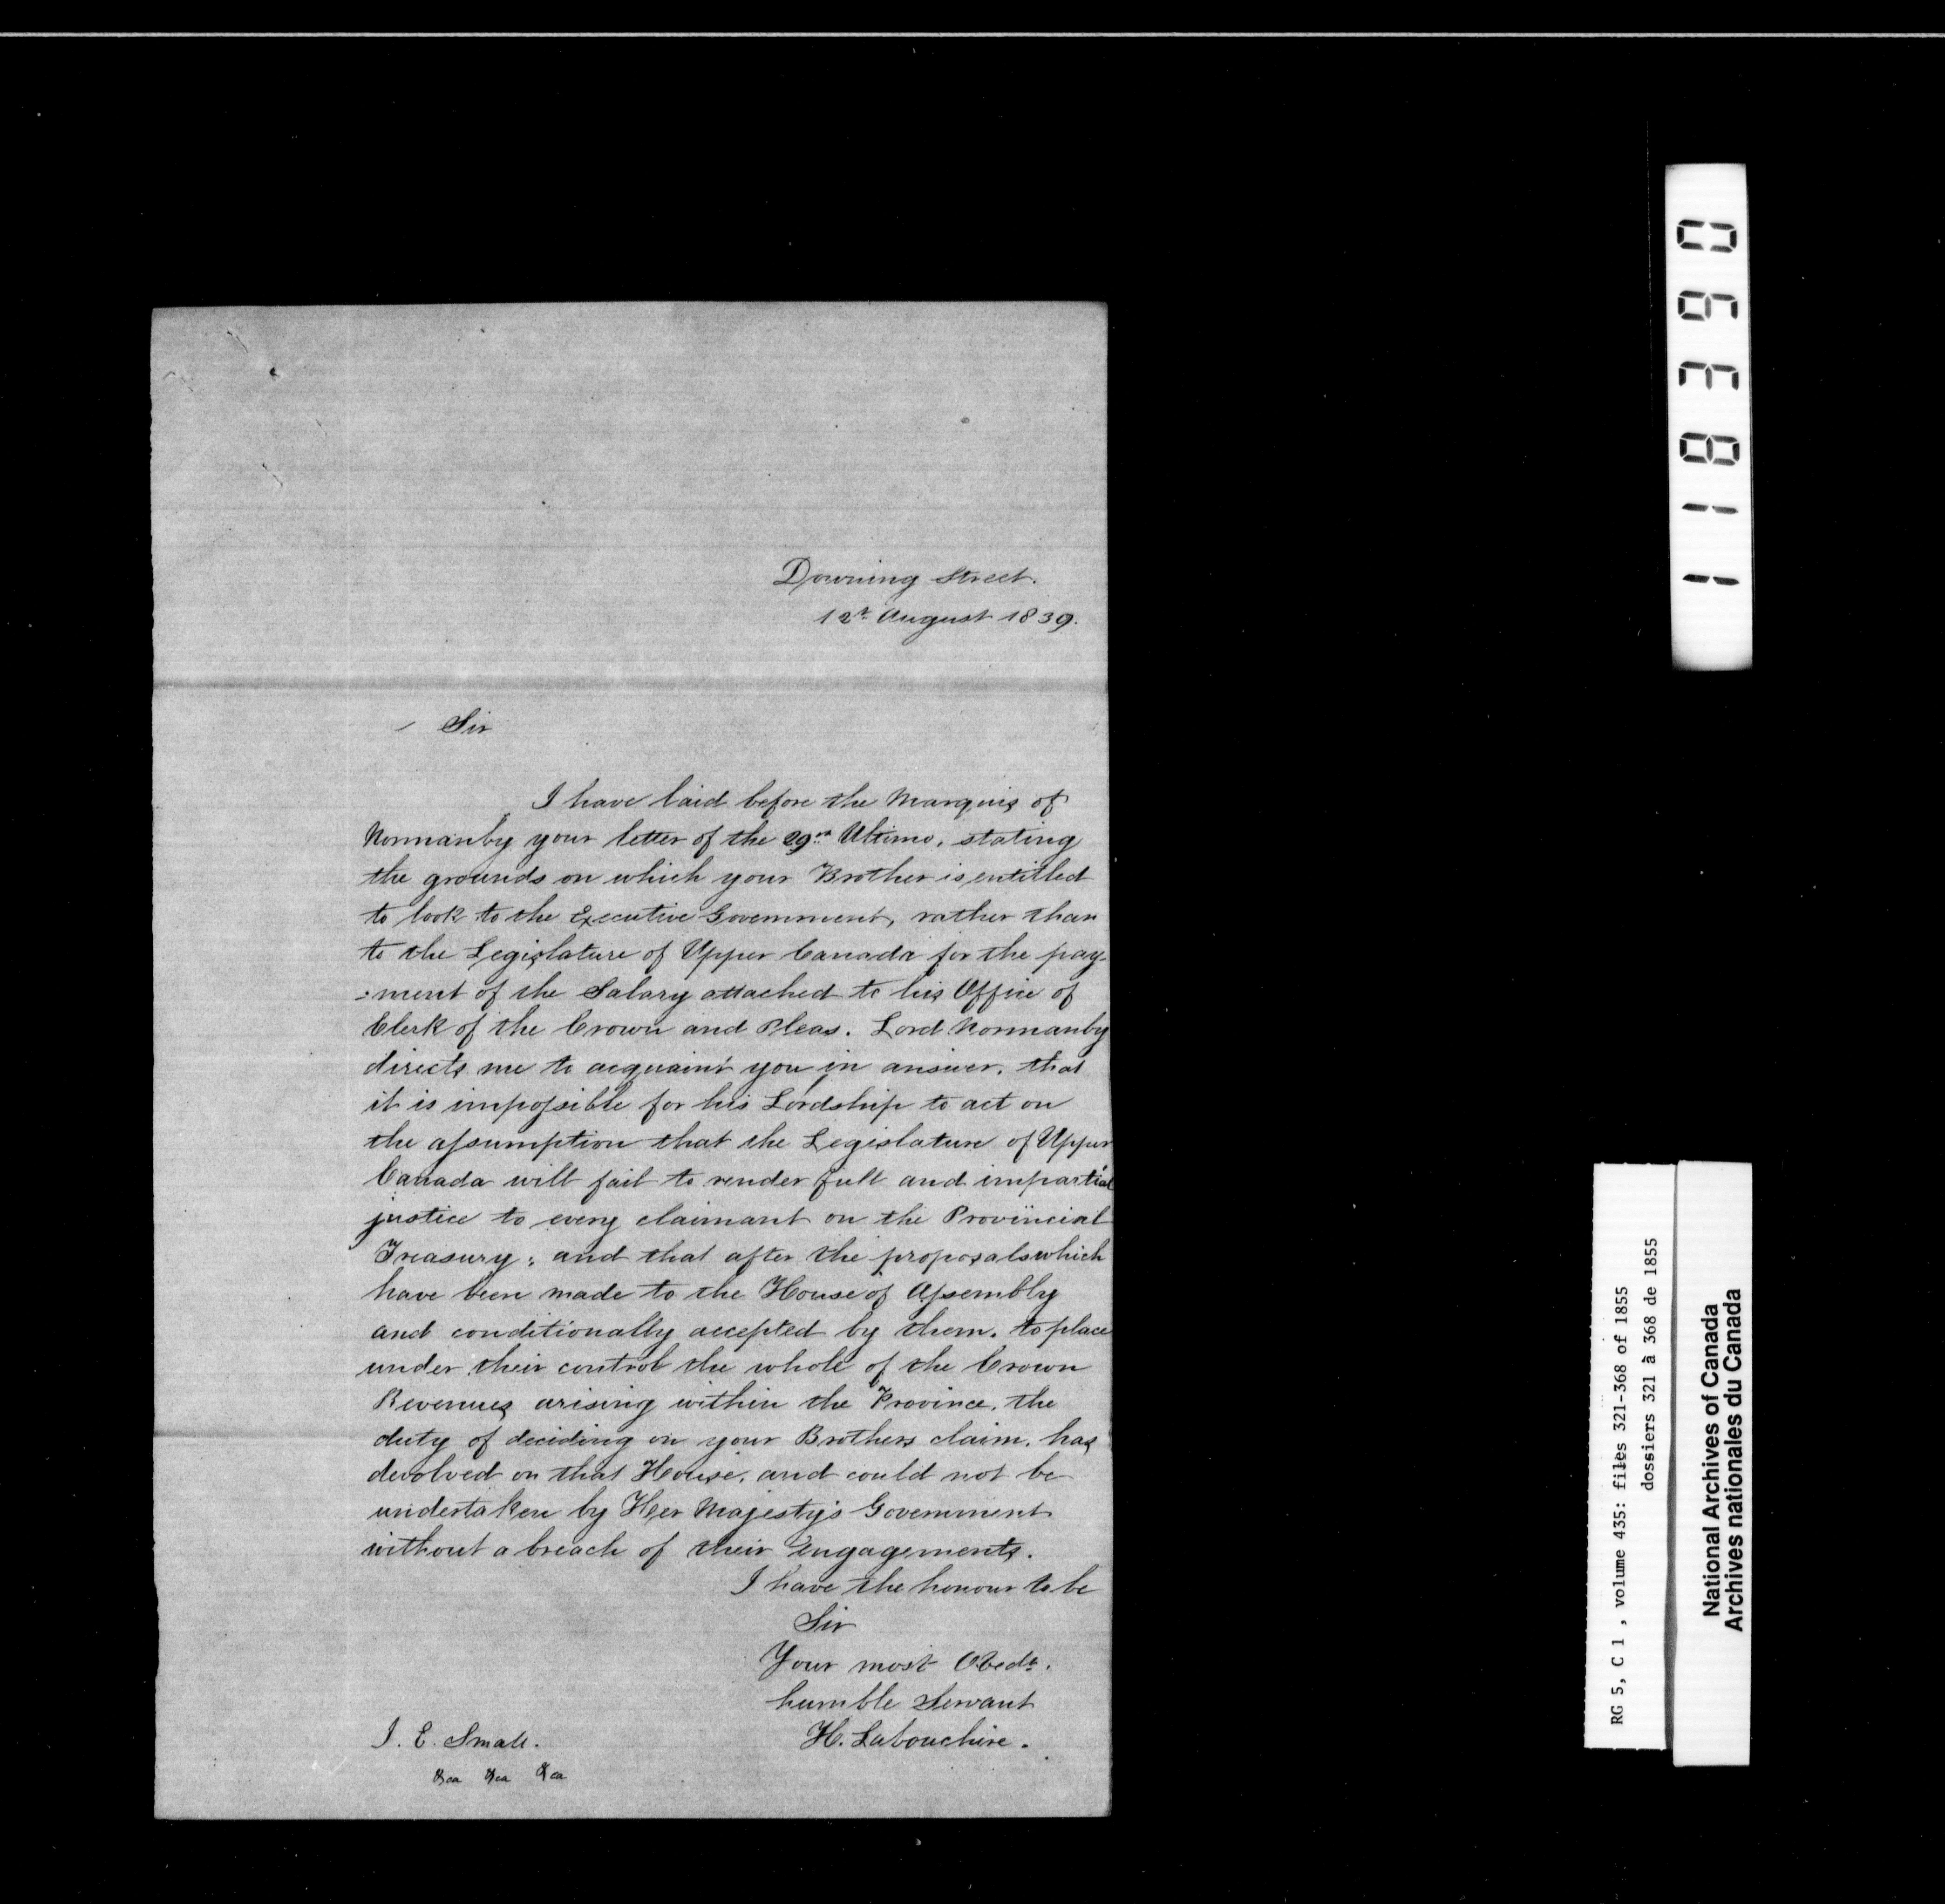 Downing Street.
12th August 1839.
Sir
I have laid before the Marquis of
Normanby your letter of the 29th Ultimo, stating
the grounds on which your Brother is entitled
to look to the Executive Government, rather than
to the Legislature of Upper Canada for the pay-
=ment of the Salary attached to his Office of
Clerk of the Crown and Pleas. Lord Normanby
directs me to acquaint you in answer, that
it is impossible for his Lordship to act on
the assumption that the Legislature of Upper
Canada will fail to render full and impartial
justice to every claimant on the Provincial
Treasury; and that after the proposals which
have been made to the House of Assembly
and conditionally accepted by them, to place
under their control the whole of the Crown
Revenues arising within the Province, the
duty of deciding on your Brothers claim, has
devolved on that House, and could not be
undertaken by Her Majesty's Government
without a breach of their Engagements.
I have the honour to be
Sir
Your most Obedt.
humble Servant
H. Labouchire.
J. E. Small.
&ca &ca &ca
118390
RG 5, C 1 , volume 435: files 321-368 of 1855
dossiers 321 à 368 de 1855
National Archives of Canada
Archives nationales du Canada